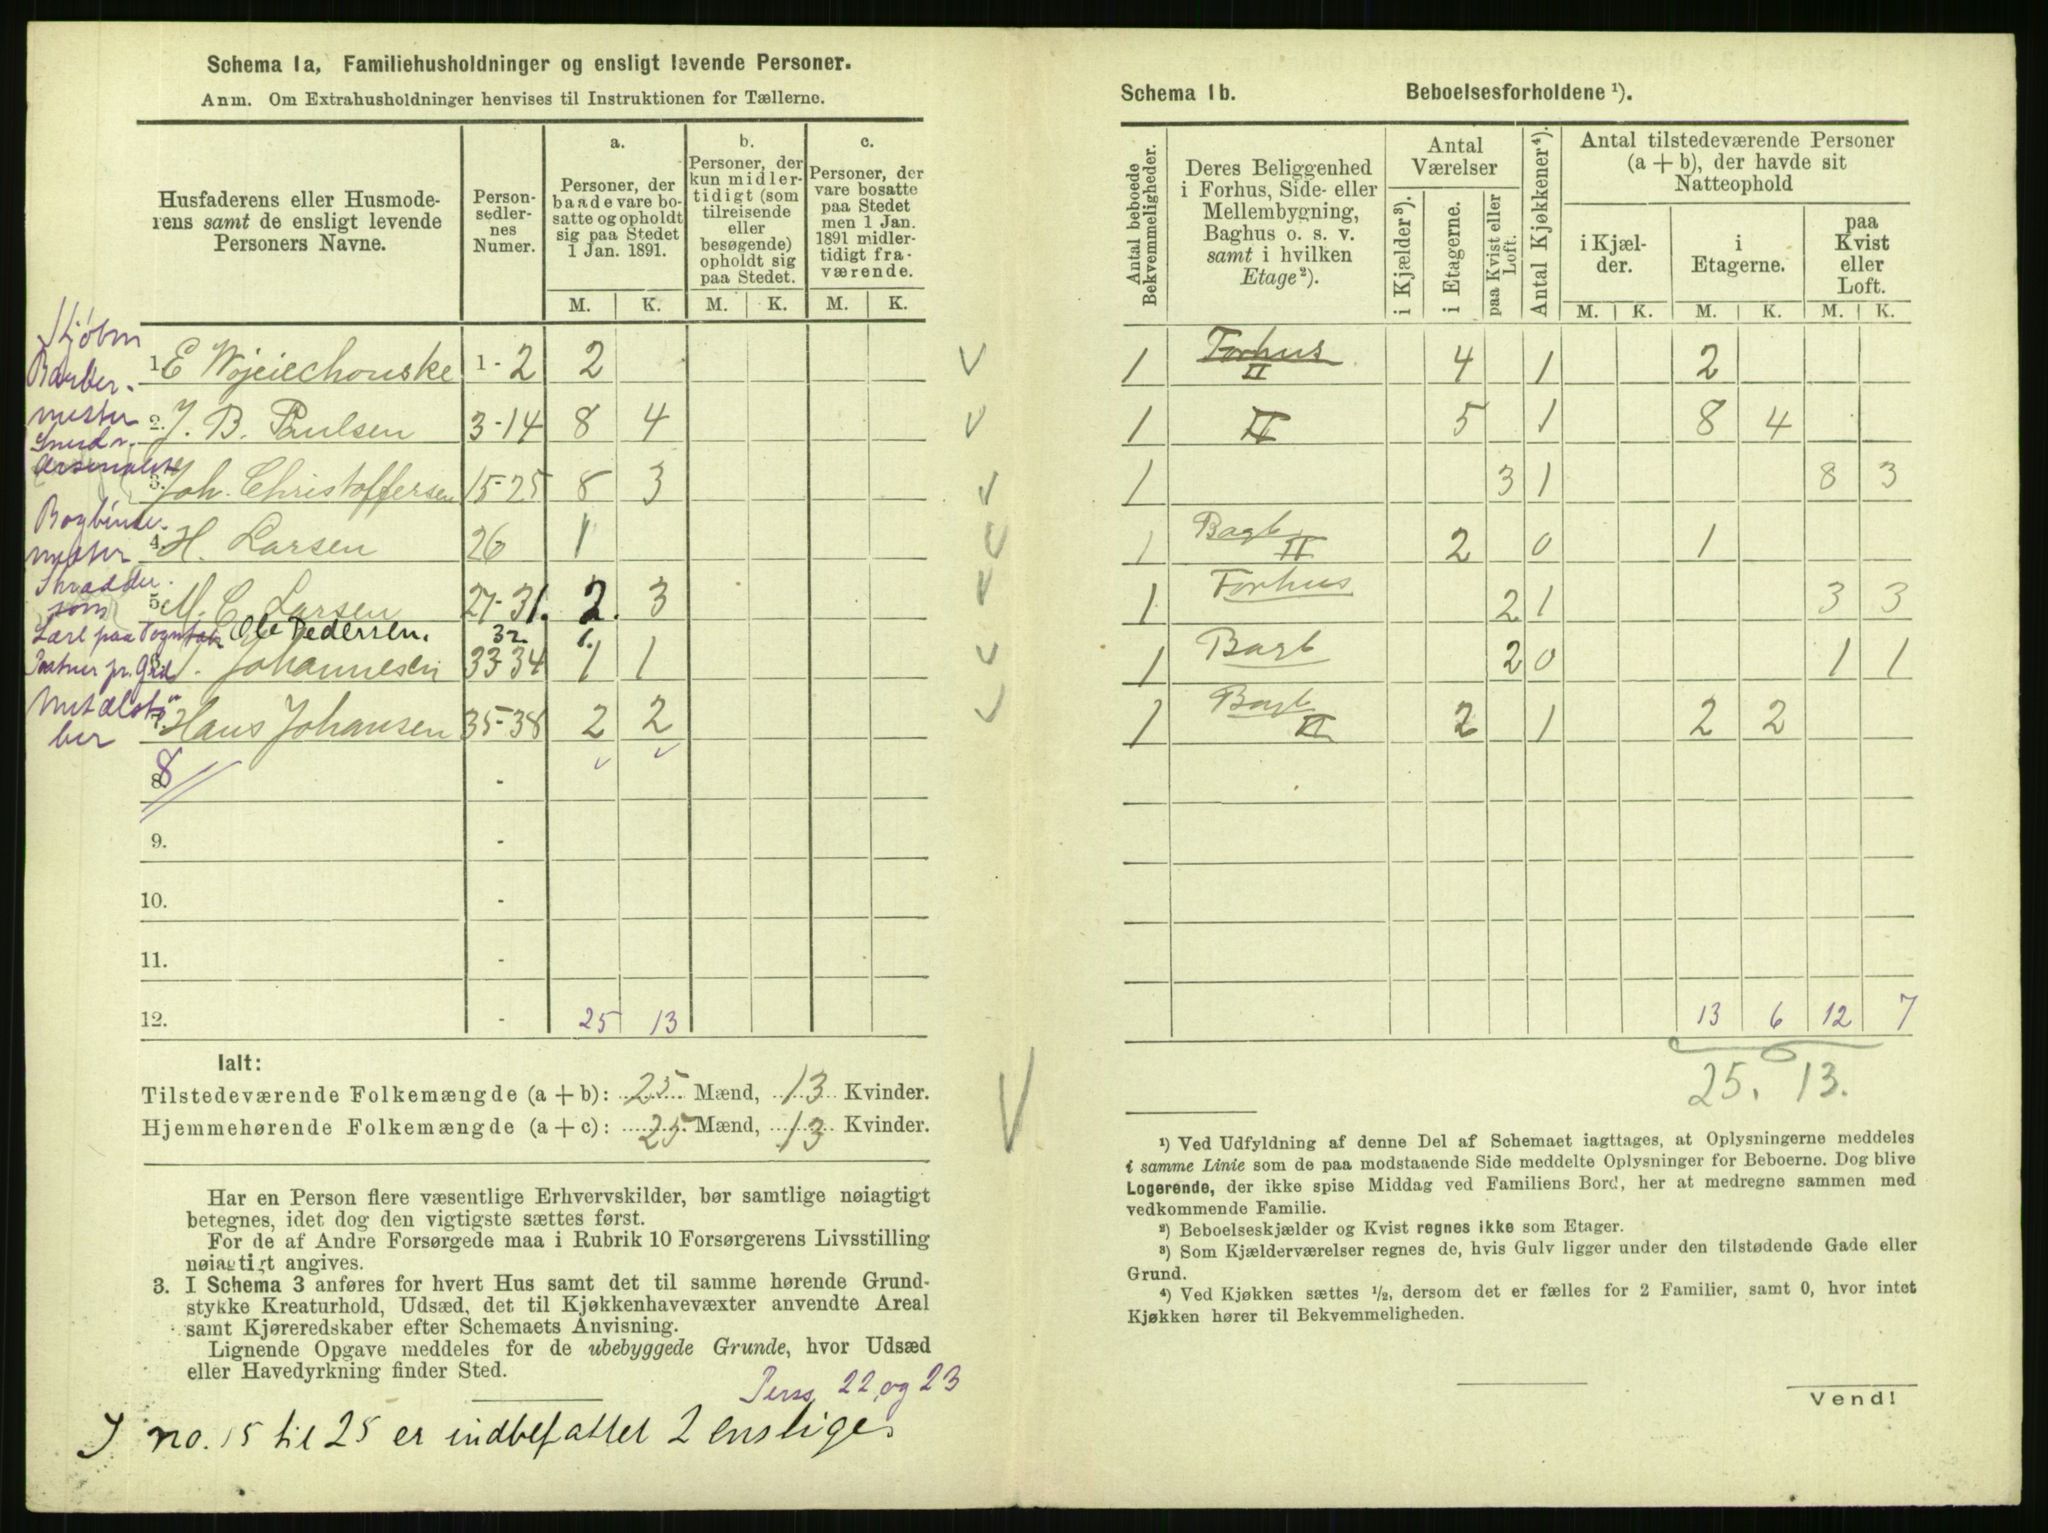 Schema 1a, Familiehusholdninger og ensligt levende Personer.
Anm. Om Extrahusholdninger henvises til Instruktionen for Tællerne.
Husfaderens eller Husmode-
rens samt de ensligt levende
Personers Navne.
Person-
sedler-
nes
Numer.
a.
Personer, der
baade vare bo-
satte og opholdt
sig paa Stedet
1 Jan. 1891.
b.
Personer, der
kun midler-
tidigt (som
tilreisende
eller
besøgende)
opholdt sig
paa Stedet.
c.
Personer, der
vare bosatte
paa Stedet
men 1 Jan.
1891 midler-
tidigt fra-
værende.
M. K. M. K. M. K.
1. E Wojciechouske 1-2 2
Barber-
mester
2. J. B. Paulsen 3-14 8 4
3. Joh. Christoffersen 15-25 8 3
Bogbinder
mester
4. H. Larsen 26 1
5. M. C. Larsen 27-31. 2. 3
Ole Pedersen. 32 1.
6. Johannesen 33-34 1 1
7. Hans Johansen 35-38 2 2
8. 8 -
9. -
10. -
11. -
12. - 25 13
Ialt:
Tilstedeværende Folkemængde (a + b): 25 Mænd, 13 Kvinder.
Hjemmehørende Folkemængde (a + c): 25 Mænd, 13 Kvinder.
Har en Person flere væsentlige Erhvervskilder, bør samtlige nøiagtigt
betegnes, idet dog den vigtigste sættes først.
For de af Andre Forsørgede maa i Rubrik 10 Forsørgerens Livsstilling
nøiagtigt angives.
3. I Schema 3 anføres for hvert Hus samt det til samme hørende Grund-
stykke Kreaturhold, Udsæd, det til Kjøkkenhavevæxter anvendte Areal
samt Kjøreredskaber efter Schemaets Anvisning.
Lignende Opgave meddeles for de ubebyggede Grunde, hvor Udsæd
eller Havedyrkning finder Sted.
Perss, 22 og 23
I no. 15 til 25 er indbefattet 2 enslige.
Schema 1b. Beboelsesforholdene ¹).
Antal beboede
Bekvemmeligheder.
Deres Beliggenhed
i Forhus, Side- eller
Mellembygning,
Baghus o. s. v.
samt i hvilken
Etage²).
Antal
Værelser
i Kjælder³).
i Etagerne.
paa Kvist eller
Loft.
Antal Kjøkkener⁴).
Antal tilstedeværende Personer
(a + b), der havde sit
Natteophold
i Kjæl-
der.
i
Etagerne.
paa
Kvist
eller
Loft.
M. K. M. K. M. K.
1 Forhus II 4 1 2
1 II 5 1 8 4
1 3 1 8 3
1 Bagb II 2 0 1
1 Forhus 2 1 3 3
1 Bagb 2 0 1 1
1 Bagb II 2 1 2 2
13 6 12 7
25. 13.
¹) Ved Udfyldning af denne Del af Schemaet iagttages, at Oplysningerne meddeles
i samme Linie som de paa modstaaende Side meddelte Oplysninger for Beboerne. Dog blive
Logerende, der ikke spise Middag ved Familiens Bord, her at medregne sammen med
vedkommende Familie.
²) Beboelseskjælder og Kvist regnes ikke som Etager.
³) Som Kjælderværelser regnes de, hvis Gulv ligger under den tilstødende Gade eller
Grund.
⁴) Ved Kjøkken sættes ½, dersom det er fælles for 2 Familier, samt 0, hvor intet
Kjøkken hører til Bekvemmeligheden.
Vend!